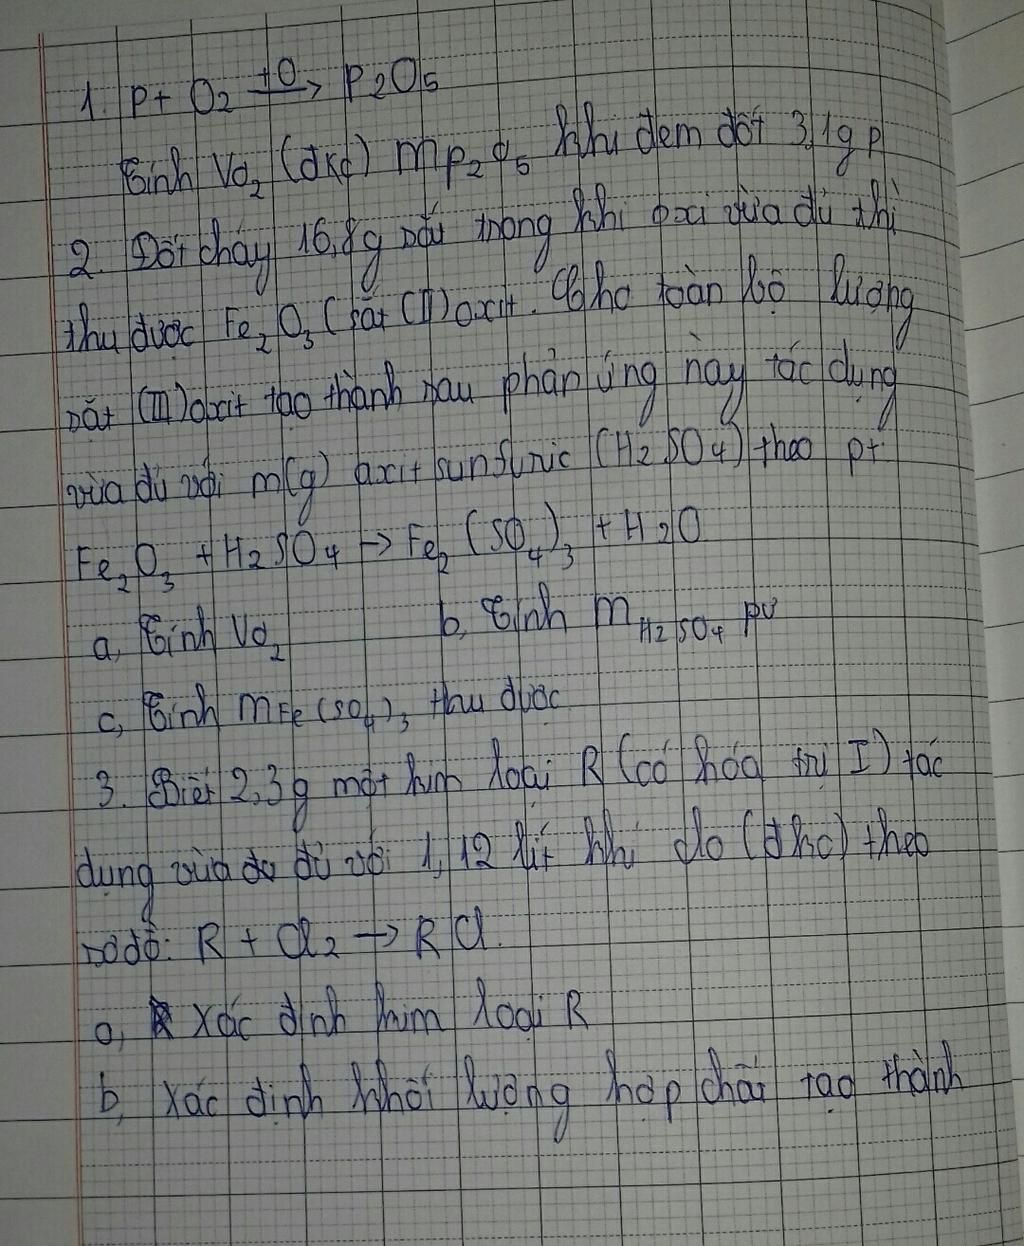 1. P + O2 +O→ P2O5
Tính VO2 (đkc) mP2O5 khi đem đốt 3,1g P
2. Đốt cháy 16,8g sắt trong khí oxi vừa đủ thì
thu được Fe2O3 (sắt (II) oxit. Cho toàn bộ lượng
sắt (III) oxit tạo thành sau phản ứng này tác dụng
vừa đủ với m(g) axit sunfuric (H2SO4) theo pt
Fe2O3 + H2SO4 → Fe2(SO4)3 + H2O
a, Tính VO2 b, Tính mH2SO4 pư
c, Tính mFe(SO4)3 thu được
3. Biết 2,3g một kim loại R (có hóa trị I) tác
dụng vừa đủ với 1,12 lít khí clo (đkc) theo
sơ đồ: R + Cl2 → RCl.
a, Xác định kim loại R
b, Xác định khối lượng hợp chất tạo thành